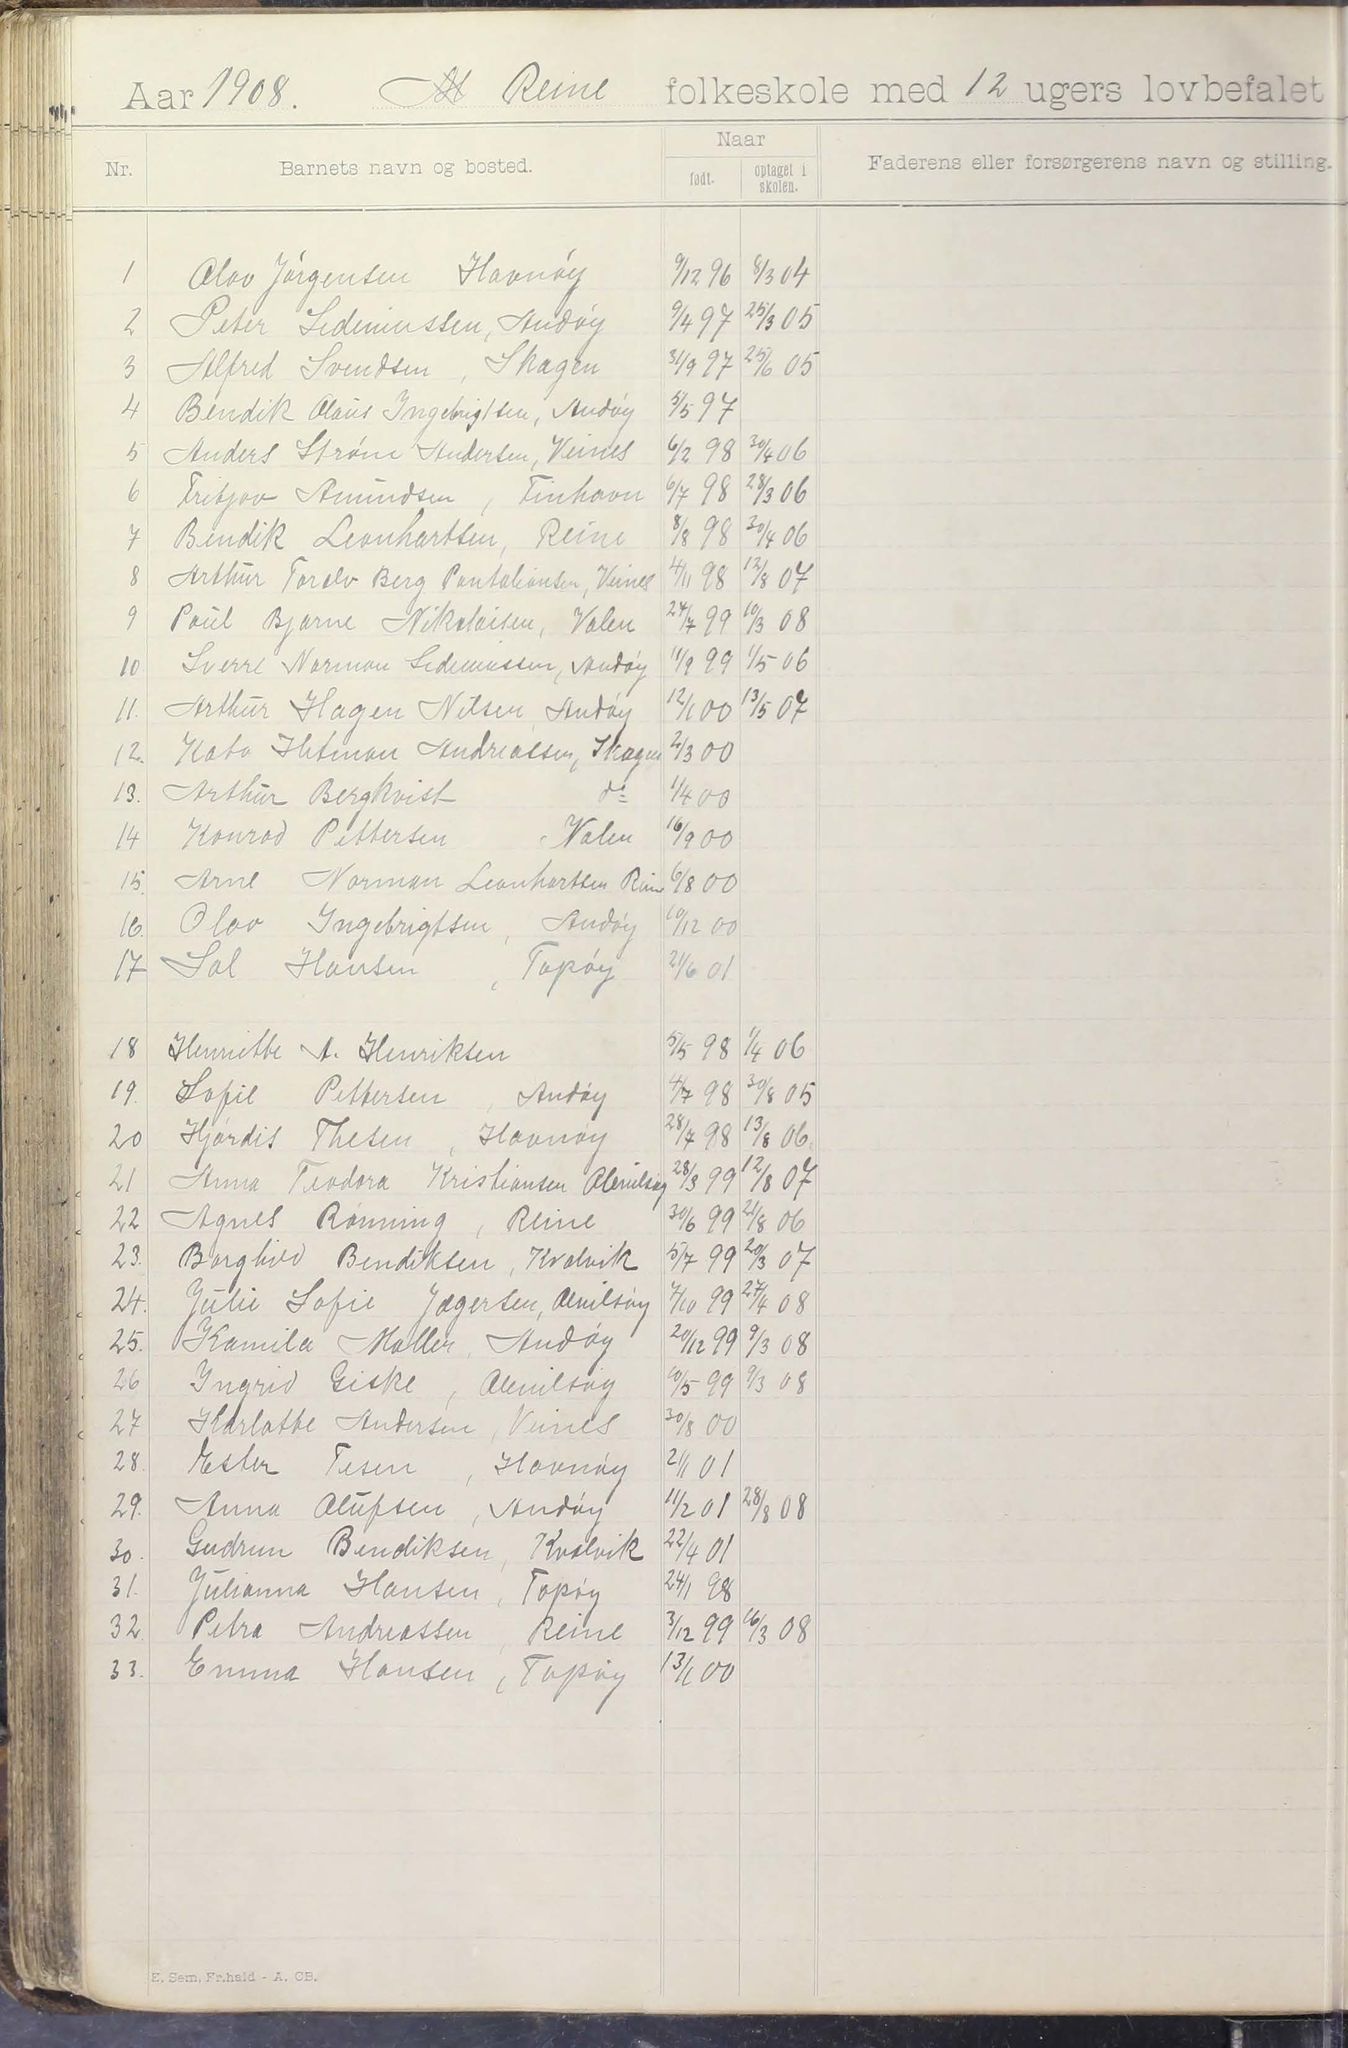 Aar 1908. Reine folkeskole med 12 ugers lovbefalet
Nr. Barnets navn og bosted. Naar Faderens eller forsørgerens navn og stilling.
født. optaget i skolen.
1 Olav Jørgensen Havnøy 9/12 96 8/3 04
2 Peter Sedeniussen, Andøy 9/4 97 25/3 05
3 Alfred Svendsen, Skagen 97 25/6 05
4 Bendik Olaus Ingebrigtsen, Andøy 5/5 97
5 Anders Strøm Andersen, Veines 6/2 98 30/4 06
6 Fritjov Amundsen, Finhavn 6/7 98 28/3 06
7 Bendik Leonhartsen, Reine 8/8 98 06
8 Arthur Toralv Berg Pantaliansen, Veines 4/11 98 12/8 07
9 Paul Bjarne Nikolaisen, Valen 24/7 99 10/3 08
10 Sverre Norman Sedeniussen, Andøy 11/9 99 1/5 06
11. Arthur Hagen Nilsen, Andøy 12/1 00 13/5 07
12. Kato Andreassen, Skagen 2/3 00
13. Arthur Bergkvist do 1/4 00
14 Konrad Pettersen Valen 16/9 00
15. Arne Norman Leonhartsen Reine 6/8 00
16. Olav Ingebrigtsen, Andøy 10/12 00
17 Sal Hansen, Topøy 21/6 01
18 Henriette A. Henriksen 5/5 98 1/4 06
19. Sofie Pettersen, Andøy 4/7 98 30/8 05
20 Hjørdis Thesen, Havnøy 28/7 98 13/8 06.
21 Anna Teodora Kristiansen Olenilsøy 28/3 99 12/8 07
22 Agnes Rønning, Reine 30/6 99 21/8 06
23. Borghild Bendiksen, Kvalvik 5/7 99 20/3 07
24. Julie Sofie Jægersen, Olenilsøy 7/10 99 27/4 08
25. Kamila Møller, Andøy 20/12 99 9/3 08
26 Ingrid Giske, Olenilsøy 10/5 99 9/3 08
27 Karlotte Andersen, Veines 30/8 00
28. Ester Tesen, Havnøy 2/1 01
29. Anna Olufsen, Andøy 11/2 01 28/8 08
30. Gudrun Bendiksen, Kvalvik 22/4 01
31. Julianna Hansen, Topøy 24/1 98
32. Petra Andreassen, Reine 3/12 99 16/3 08
33. Emma Hansen, Topøy 13/1 00
E. Sem, Fr.hald - A. CB.